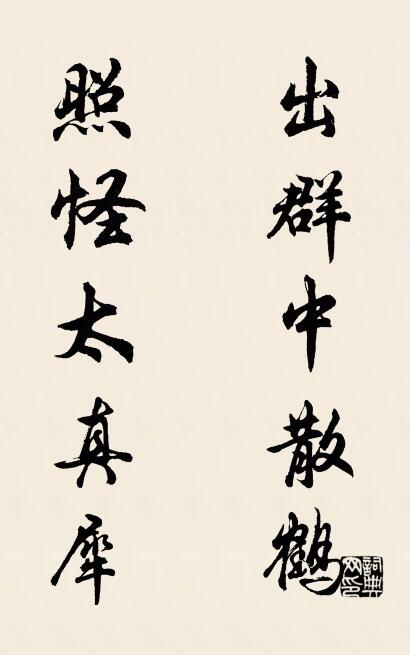 出群中散鶴
照怪太真犀
詞典網印